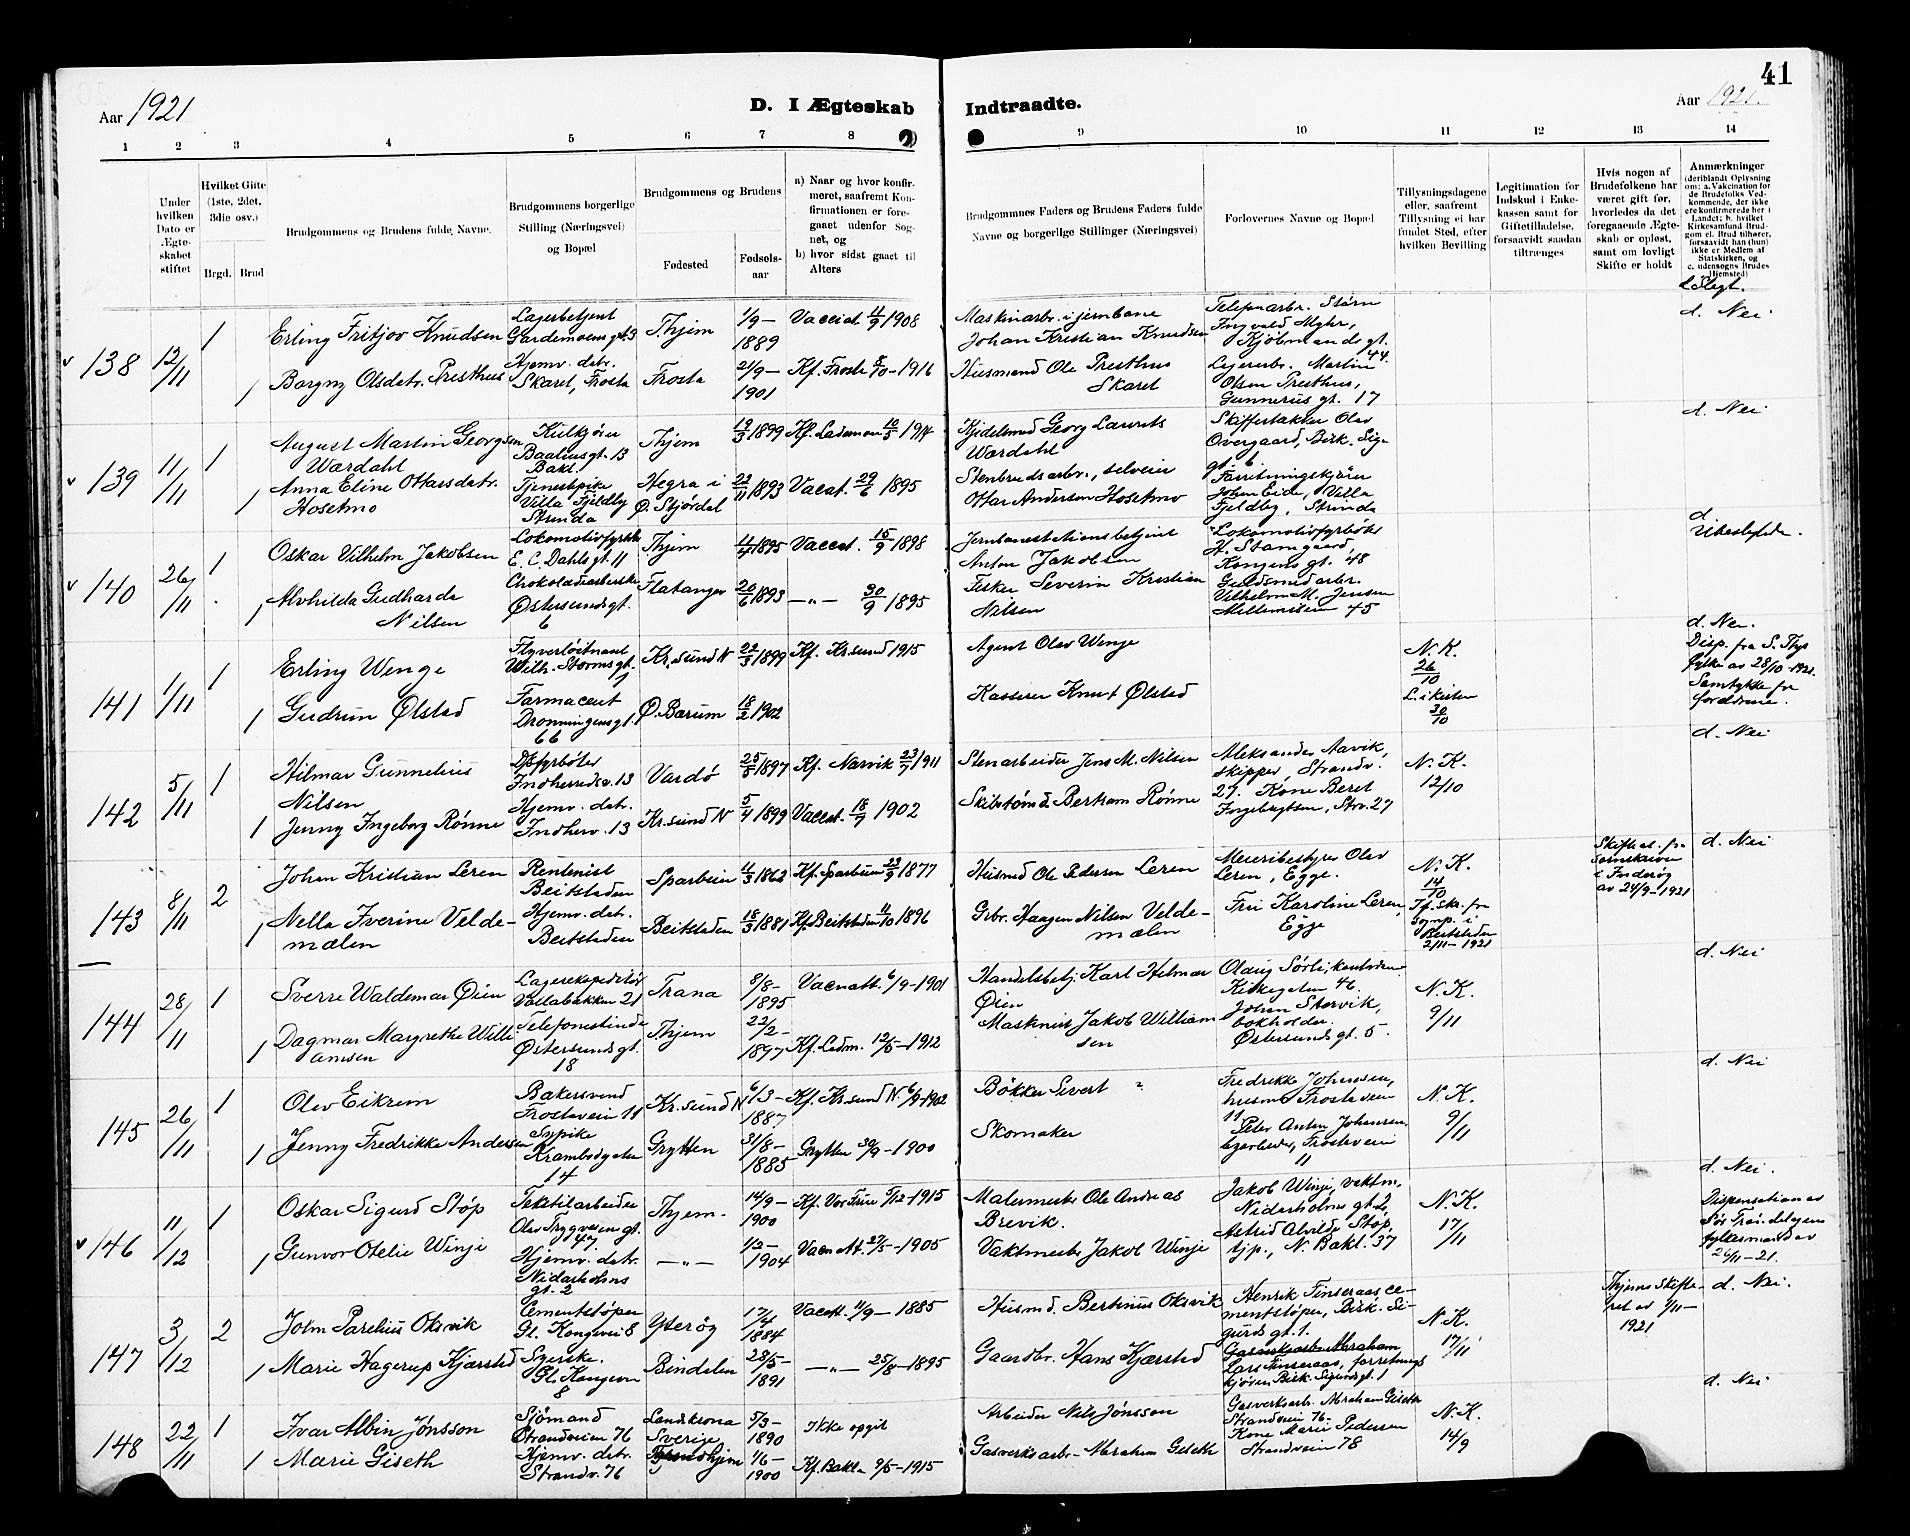 41
Aar 1921
D. I Ægteskab Indtraadte.
Aar 1921.
1 2 3 4 5 6 7 8 9 10 11 12 13 14
Under hvilken Dato er Ægteskabet stiftet
Hvilket Gifte (1ste, 2det, 3die osv.)
Brgd. Brud
Brudgommens og Brudens fulde Navne.
Brudgommens borgerlige Stilling (Næringsvei) og Bopæl
Brudgommens og Brudens
Fødested
Fødselsaar
a) Naar og hvor konfirmeret, saafremt Konfirmationen er foregaaet udenfor Sognet, og
b) hvor sidst gaaet til Alters
Brudgommnes Faders og Brudens Faders fulde Navne og borgerlige Stillinger (Næringsvei)
Forlovernes Navne og Bopæl
Tillysningsdagene eller, saafremt Tillysning ei har fundet Sted, efter hvilken Bevilling
Legitimation for Indskud i Enkekassen samt for Giftetilladelse, forsaavidt saadan tiltrænges
Hvis nogen af Brudefolkene har været gift før, hvorledes da det foregaaende Ægteskab er opløst, samt om lovligt Skifte er holdt
Anmærkninger (deriblandt Oplysning om: a. Vakcination for de Brudefolks Vedkommende, der ikke ere konfirmerede her i Landet; b. hvilket Kirkesamfund Brudgom el. Brud tilhører, forsaavidt han (hun) ikke er Medlem af Statskirken, og c. udensogns Brudes Hjemsted)
d. Slegt.
138 12/11 1
Erling Fritjov Knudsen
Lagerbetjent
Gardemoensgt. 3
Thjem
1/9-1889
Vacciat. 11/9 1908
Maskinarb. i jernbane
Johan Kristian Knudsen
Telefonarbr. Størn
Ingvald Myhr,
Kjøbmandsgt. 44.
d. Nei
1 Borgny Olsdatr. Presthus
Hjemv. datr.
Skaret, Frosta
Frosta
21/9-1901
Kf. Frosta 8/10-1916
Husmand Ole Presthus
Skaret
Lagerarbr. Martin
Olsen Presthus,
Gunnerus gt. 17
139 11/11 1
August Martin Georgsen
Wærdahl
Kulkjører
Baalsnsgt. 13
Bakl.
Thjem
12/3 1899
Kf. Lademoen 10/5 1914
Kjedelsmed Georg Laurits
Wærdahl
Skiffertækker Olav
Overgaard, Birk. Sig-
gt. 6.
d. Nei
1 Anna Eline Ottarsdatr.
Hosetmo
Tjenestpike
Villa Fjeldby
Strinda
Hegra i
Ø. Stjørdal
22/11 1893
Vacat. 29/6 1895
Stenbrudsarbr., selveier
Ottar Andersen Hosetmo
Forretningskjører
Johan Eide, Villa
Fjeldby, Strinda
140 26/11 1
Oskar Vilhelm Jakobsen
Lokomotivfyrbt.
E. C. Dahls gt. 11
Thjem
11/4 1895
Vaccat. 15/9 1898
Jernbanestationsbetjent
Anton Jakobsen
Lokomotivfyrbøter
H. Stamgaard,
Kongens gt. 48
d.
Ubeslegtede.
1 Alvhilda Gudharda
Nilsen
Chokoladearberske
Østersundsgt.
6
Flatanger
20/6 1893
—"— 30/9 1895
Fisker Severin Kristian
Nilsen
Guldsmedarbr.
Vilhelm M. Jensen
Mellemveien 45
141 1/11 1
Erling Wenge
Flyverløitnant
Wilh. Stormsgt. 7
Kr. sund N
22/3 1899
Kf. Kr. sund 1915
Agent Olav Wenge
N. K.
26/10
L. i kirken
30/10
d. Nei.
Disp. fra S. Thjs
fylke av 28/10-1921
Samtykke fra
forældrene.
1 Gudrun Ølstad
Farmaceut
Dronningensgt.
66
Ø. Bærum
18/2 1902
Kasserer Knut Ølstad
142 5/11 1
Hilmar Gunnelius
Nilsen
Dsfyrbøter
Indherredsv. 13
Vardø
25/5 1897
Kf. Narvik 23/7 1911
Stenarbeider Jens M. Nilsen
Aleksander Aavik,
skipper, Strandv.
27. Kone Beret
Ingebrigtsen, Strv. 27
N. K.
12/10
d. Nei
1 Jenny Ingeborg Rønne
Hjemv. datr.
Indherv. 13
Kr. sund N
5/4 1899
Vaccat. 18/9 1902
Skibstømd. Bertram Rønne
143 8/11 2
Johan Kristian Leren
Rentenist
Beitstaden
Sparbuen
11/3 1862
Kf. Sparbuen 23/9 1877
Husmd. Ole Pedersen Leren
Meieribestyrer Olav
Leren, Egge.
N. K.
14/10
Tf. skr. fra
sognp. i
Beitstaden
2/11-1921
Skifteat. fra
Sorenskriver
i Inderøy
av 24/9-1921
d. Nei
1 Nella Iverine Velde-
mælen
Hjemv. datr.
Beitstaden
Beitstaden
18/3 1881
Kf. Beitstaden 11/10 1896
Grbr. Haagen Nilsen Velde-
mælen
Fru Karoline Leren,
Egge
144 28/11 1
Sverre Waldemar Øien
Lagerekspeditør
Vollabakken 21
Trana
8/8-1895
Vacnatt. 6/9-1901
Handelsbetj. Karl Hilmar
Øien
Olaug Sørli, kontordame
Kirkegaten 46.
N. K.
9/11
d. Nei
1 Dagmar Margrethe Willi-
amsen
Telefonistinde
Østersundsgt.
18
Thjem
22/2-1897
Kf. Ladm. 12/5-1912
Maskinist Jakob William-
sen
Johan Størvik,
bokholder.
Østersundsgt. 5.
145 26/11 1
Olav Eikrem
Bakersvend
Frostaveien 11
Kr. sund N
6/3-1887
Kf. Kr. sund N. 6/9-1902
Bøkker Sivert ?
Fredrikke Johansen,
husm. Frostaveien
11
N. K.
9/11
d. Nei
1 Jenny Fredrikke Andersen
Sypike
Krambodgaten
14
Grytten
31/8-1885
Grytten 30/9-1900
Skomaker
Peter Anton Johansen,
lagerarbeider, Frostaveien
11
146 11/12 1
Oskar Sigurd Støp
Tekstilarbeider
Olav Trygvesens gt.
47.
Thjem.
14/9-1900
Kf. Vor Frue 5/12-1915
Malermester Ole Andreas
Brevik.
Jakob Winje, vektm.
Nidarholms gt. 2,
N. K.
17/11
d. Nei.
Dispensation av
Sør Trøndelagens
fylkesmand av
26/11-21.
1 Gunvor Otelie Winje
Hjemv. datr.
Nidarholms
gt. 2
—"—
1/3-1904
Vacn At. 27/5-1905
Vaktmester Jakob Winje
Astrid Alvilde Støp,
tjp., N. Bakl. 37
147 3/12 2
John Parelius Oksvik
Cementstøper
Gl. Kongevei 8
Yterøy
17/4 1884
Vacatt. 11/9-1885
Husmd. Bertinus Oksvik
Henrik Finseraas ce-
mentstøper, Birk. Si-
gurds gt. 1.
N. K.
17/11
Thjems Skifte-
ret av 1/11-
1921
d. Nei.
1 Marie Hagerup Kjærstad
Syerske.
Gl. Kongevei
8
Bindalen
28/5-1891
—"— 25/8-1895
Gaardbr. Hans Kjærstad
Lars Finseraas, forretnings
kjører Birk. Sigurdsgt. 1
148 22/11 1
Ivar Albin Jønsson
Sjømand
Strandveien 76
Landskrona
Sverige
5/3-1890
Ikke opgit
Arbeider Nils Jønsson
Gasverksarb. Abraham Giseth
Strandveien 76-
N. K.
14/9
d. Nei
1 Marie Giseth
Hjemv. datr.
Strandv. 76
Trondhjem
1/6-1900
Kf. Bakl. 9/5-1915
Gasverksarb- Abraham Giseth
Kone Marie Pedersen
Strandveien 78